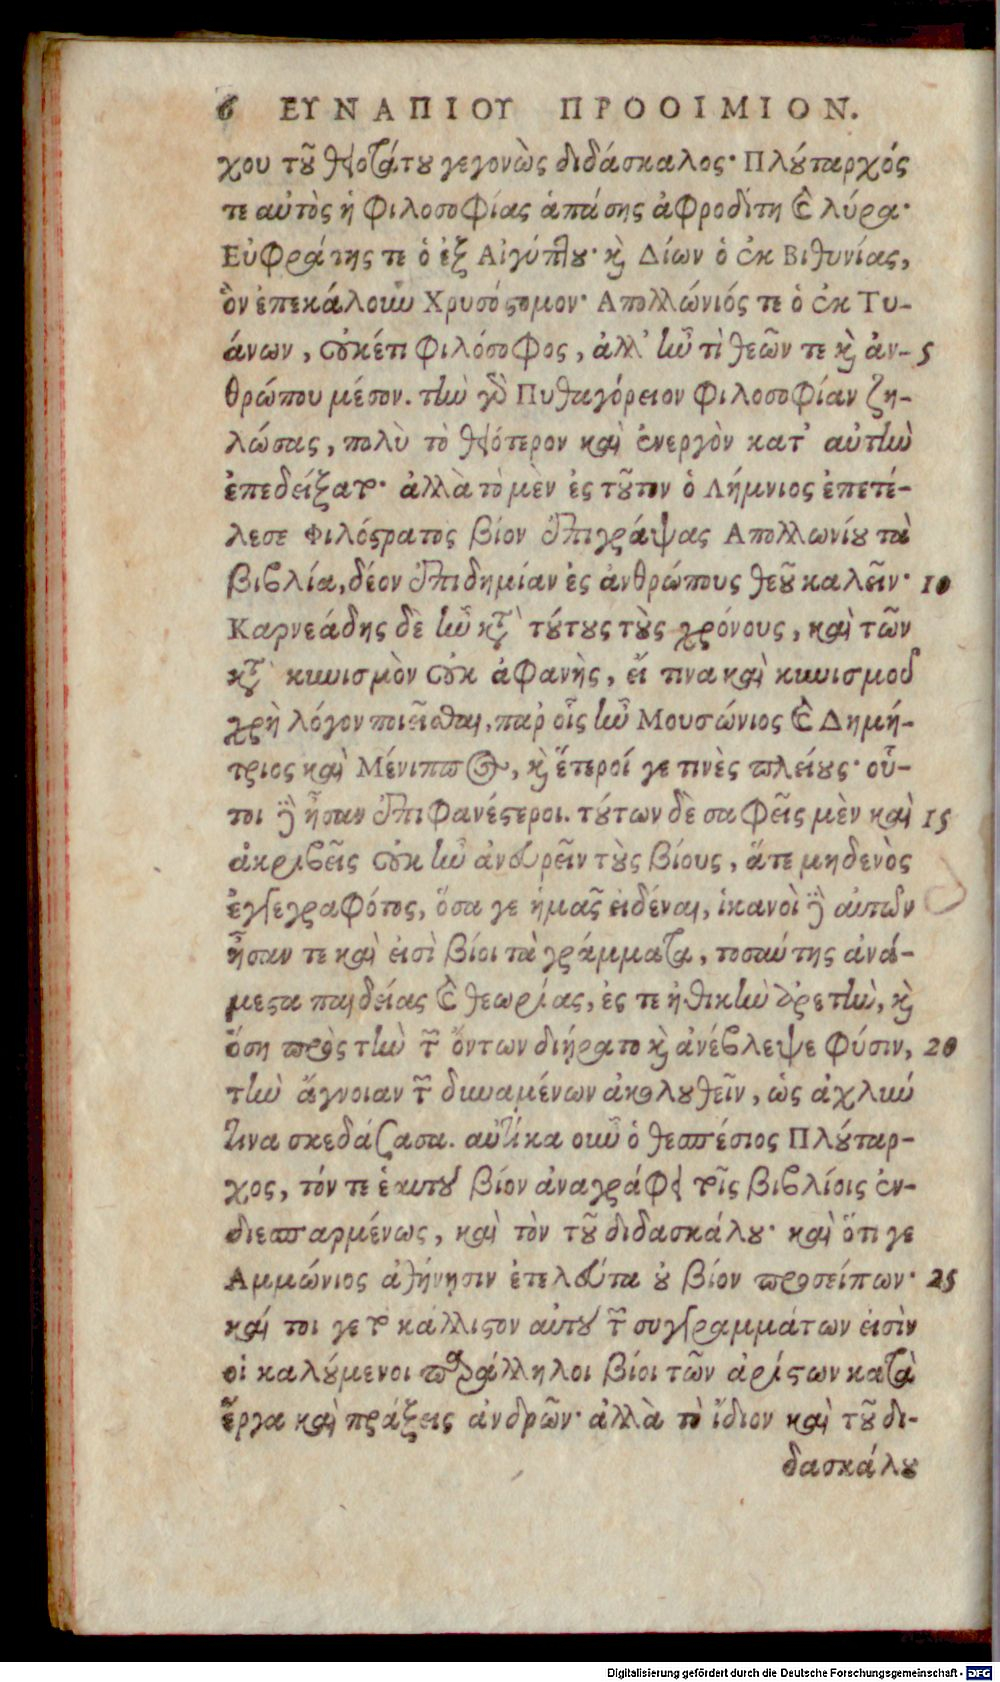 6 ΕΥΝΑΠΙΟΥ ΠΡΟΟΙΜΙΟΝ.
χου τοῦ θειοτάτου γεγονὼς διδάσκαλος· Πλούταρχός
τε αὐτὸς ἡ φιλοσοφίας ἁπάσης ἀφροδίτη καὶ λύρα·
Εὐφράτης τε ὁ ἐξ Αἰγύπτου· καὶ Δίων ὁ ἐκ Βιθυνίας,
ὃν ἐπεκάλουν Χρυσόστομον· Απολλώνιός τε ὁ ἐκ Τυ-
άνων, οὐκέτι φιλόσοφος, ἀλλ' ἦν τὶ θεῶν τε καὶ ἀν- 5
θρώπου μέσον. τὴν γὰρ Πυθαγόρειον φιλοσοφίαν ζη-
λώσας, πολὺ τὸ θειότερον καὶ ἐνεργὸν κατ' αὐτὴν
ἐπεδείξατο· ἀλλὰ τὸ μὲν ἐς τοῦτον ὁ Λήμνιος ἐπετέ-
λεσε Φιλόστρατος βίον ἐπιγράψας Απολλωνίου τὰ
βιβλία, δέον ἐπιδημίαν ἐς ἀνθρώπους θεοῦ καλεῖν· 10
Καρνεάδης δὲ ἦν κατὰ τούτους τοὺς χρόνους, καὶ τῶν
κατὰ κυνισμὸν οὐκ ἀφανὴς, εἴ τινα καὶ κυνισμοῦ
χρὴ λόγον ποιεῖσθαι, παρ' οἷς ἦν Μουσώνιος καὶ Δημή-
τριος καὶ Μένιππος, καὶ ἕτεροί γε τινὲς πλείους· οὗ-
τοι γὰρ ἦσαν ἐπιφανέστεροι. τούτων δὲ σαφεῖς μὲν καὶ 15
ἀκριβεῖς οὐκ ἦν ἀνευρεῖν τοὺς βίους, ἅτε μηδενὸς
ἐγγεγραφότος, ὅσα γε ἡμᾶς εἰδέναι, ἱκανοὶ γὰρ αὐτῶν
ἦσαν τε καὶ εἰσὶ βίοι τὰ γράμματα, τοσαύτης ἀνά-
μεστα παιδείας καὶ θεωρίας, ἐς τε ἠθικὴν ἀρετὴν, καὶ
ὅση πρὸς τὴν τῶν ὄντων διῄρατο καὶ ἀνέβλεψε φύσιν, 20
τὴν ἄγνοιαν τῶν δυναμένων ἀκολουθεῖν, ὡς ἀχλύν
τινα σκεδάζασα. αὐτίκα οὖν ὁ θεσπέσιος Πλούταρ-
χος, τόν τε ἑαυτοῦ βίον ἀναγράφει τοῖς βιβλίοις ἐν-
διεσπαρμένως, καὶ τὸν τοῦ διδασκάλου· καὶ ὅτι γε
Αμμώνιος ἀθήνησιν ἐτελεύτα οὐ βίον προσείπων· 25
καί τοι γε τὸ κάλλιστον αὐτοῦ τῶν συγγραμμάτων εἰσὶν
οἱ καλούμενοι παράλληλοι βίοι τῶν ἀρίστων κατὰ
ἔργα καὶ πράξεις ἀνδρῶν· ἀλλὰ τὸ ἴδιον καὶ τοῦ δι-
δασκάλου
Digitalisierung gefördert durch die Deutsche Forschungsgemeinschaft - DFG